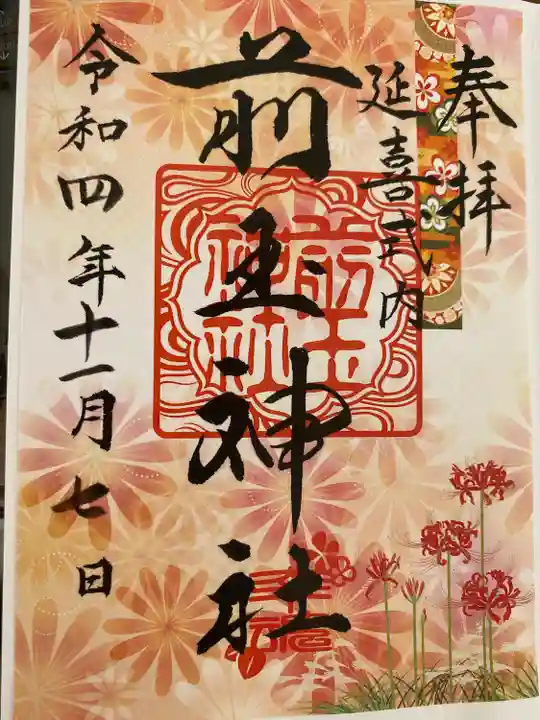 奉拝
延喜式内
前玉神社
前玉
神社
令和四年十一月七日